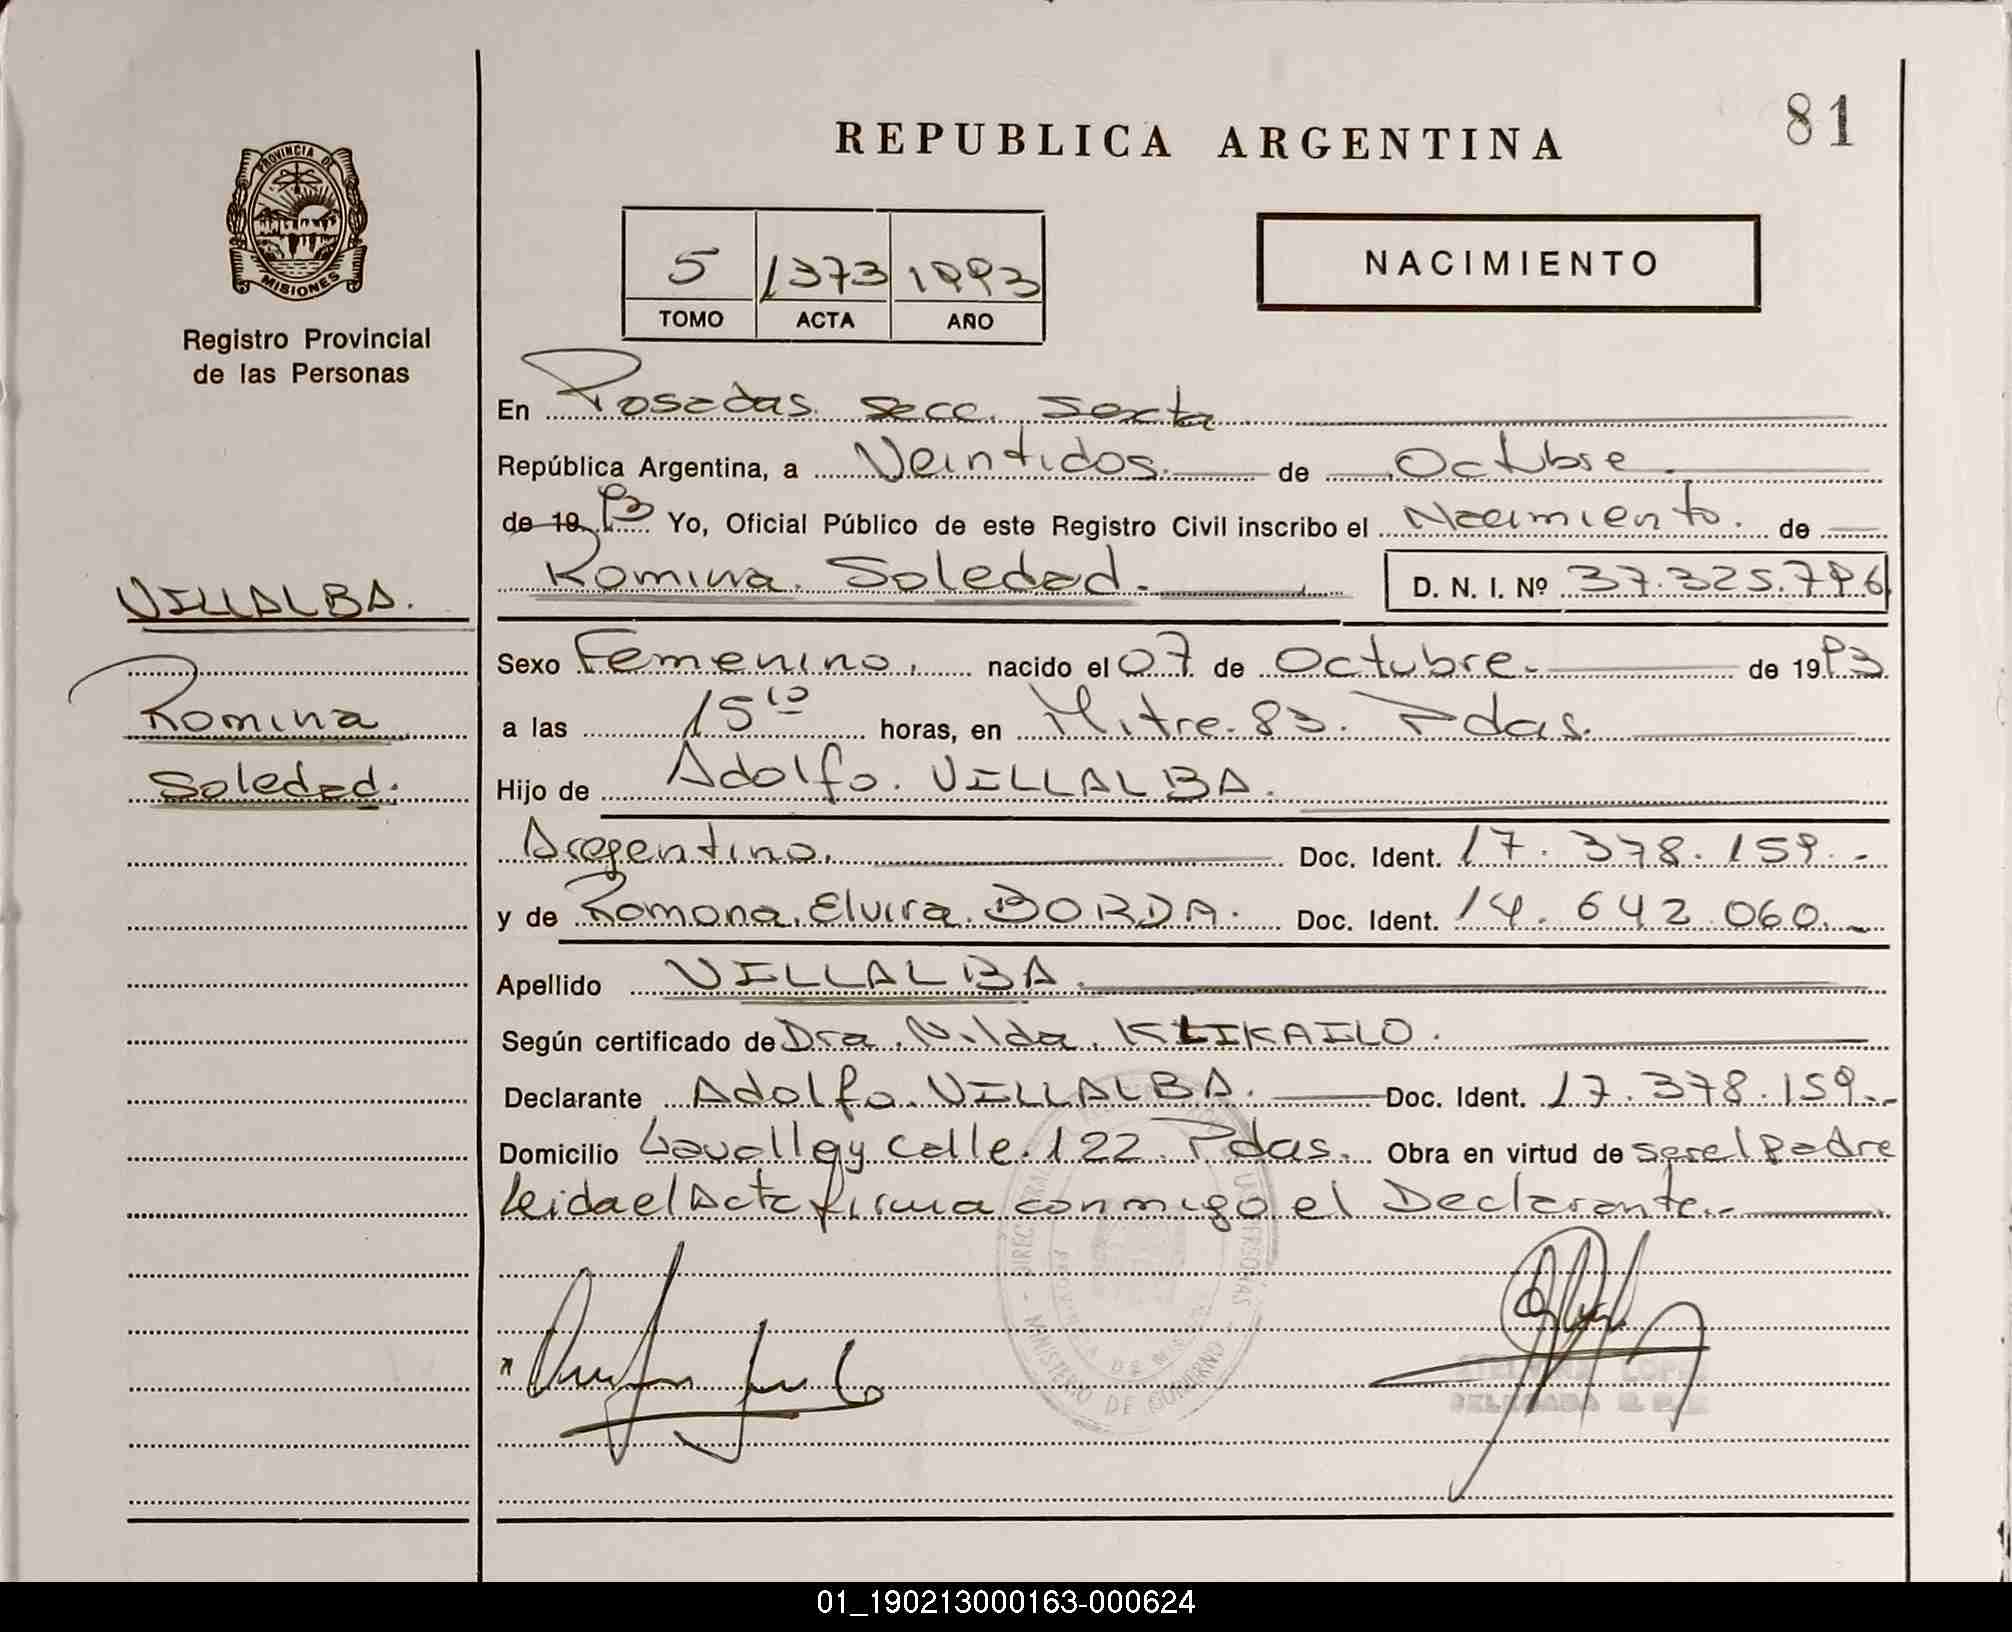 81
REPUBLICA ARGENTINA
PROVINCIA DE
MISIONES
Registro Provincial
de las Personas
5 1373 1993
TOMO ACTA AÑO
NACIMIENTO
En Posadas secc. sexta
República Argentina, a Veintidos. de Octubre.
de 19 93 Yo, Oficial Público de este Registro Civil inscribo el Nacimiento. de
Romina. Soledad. D. N. I. Nº 37.325.796
VILLALBA.
Romina
Soledad.
Sexo Femenino, nacido el 07 de Octubre. de 1993
a las 15 10 horas, en Mitre. 83. Pdas.
Hijo de Adolfo. VILLALBA.
Argentino. Doc. Ident. 17.378.159.-
y de Ramona. Elvira. BORDA. Doc. Ident. 14.642.060.-
Apellido VILLALBA.
Según certificado de Dra. Nilda. KLIKAILO.
Declarante Adolfo. VILLALBA. Doc. Ident. 17.378.159.-
Domicilio Lavalle y calle. 122. Pdas. Obra en virtud de ser el padre
leida el Acta firma conmigo el Declarante.-
MINISTERIO DE GOBIERNO
01_190213000163-000624